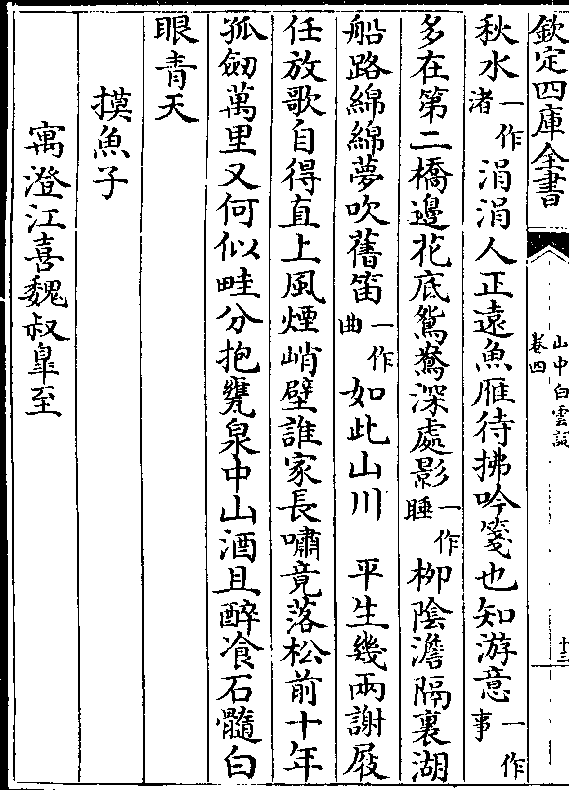 欽定四庫全書
山中白雲詞
卷四
十三
秋水一作渚涓涓人正遠魚雁待拂吟箋也知游意一作事
多在第二橋邊花底鴛鴦深處影一作睡柳陰澹隔裏湖
船路綿綿夢吹舊笛一作曲如此山川　平生幾兩謝屐
任放歌自得直上風煙峭壁誰家長嘯竟落松前十年
孤劒萬里又何似畦分抱甕泉中山酒且醉飡石髓白
眼青天
摸魚子
寓澄江喜魏叔臯至